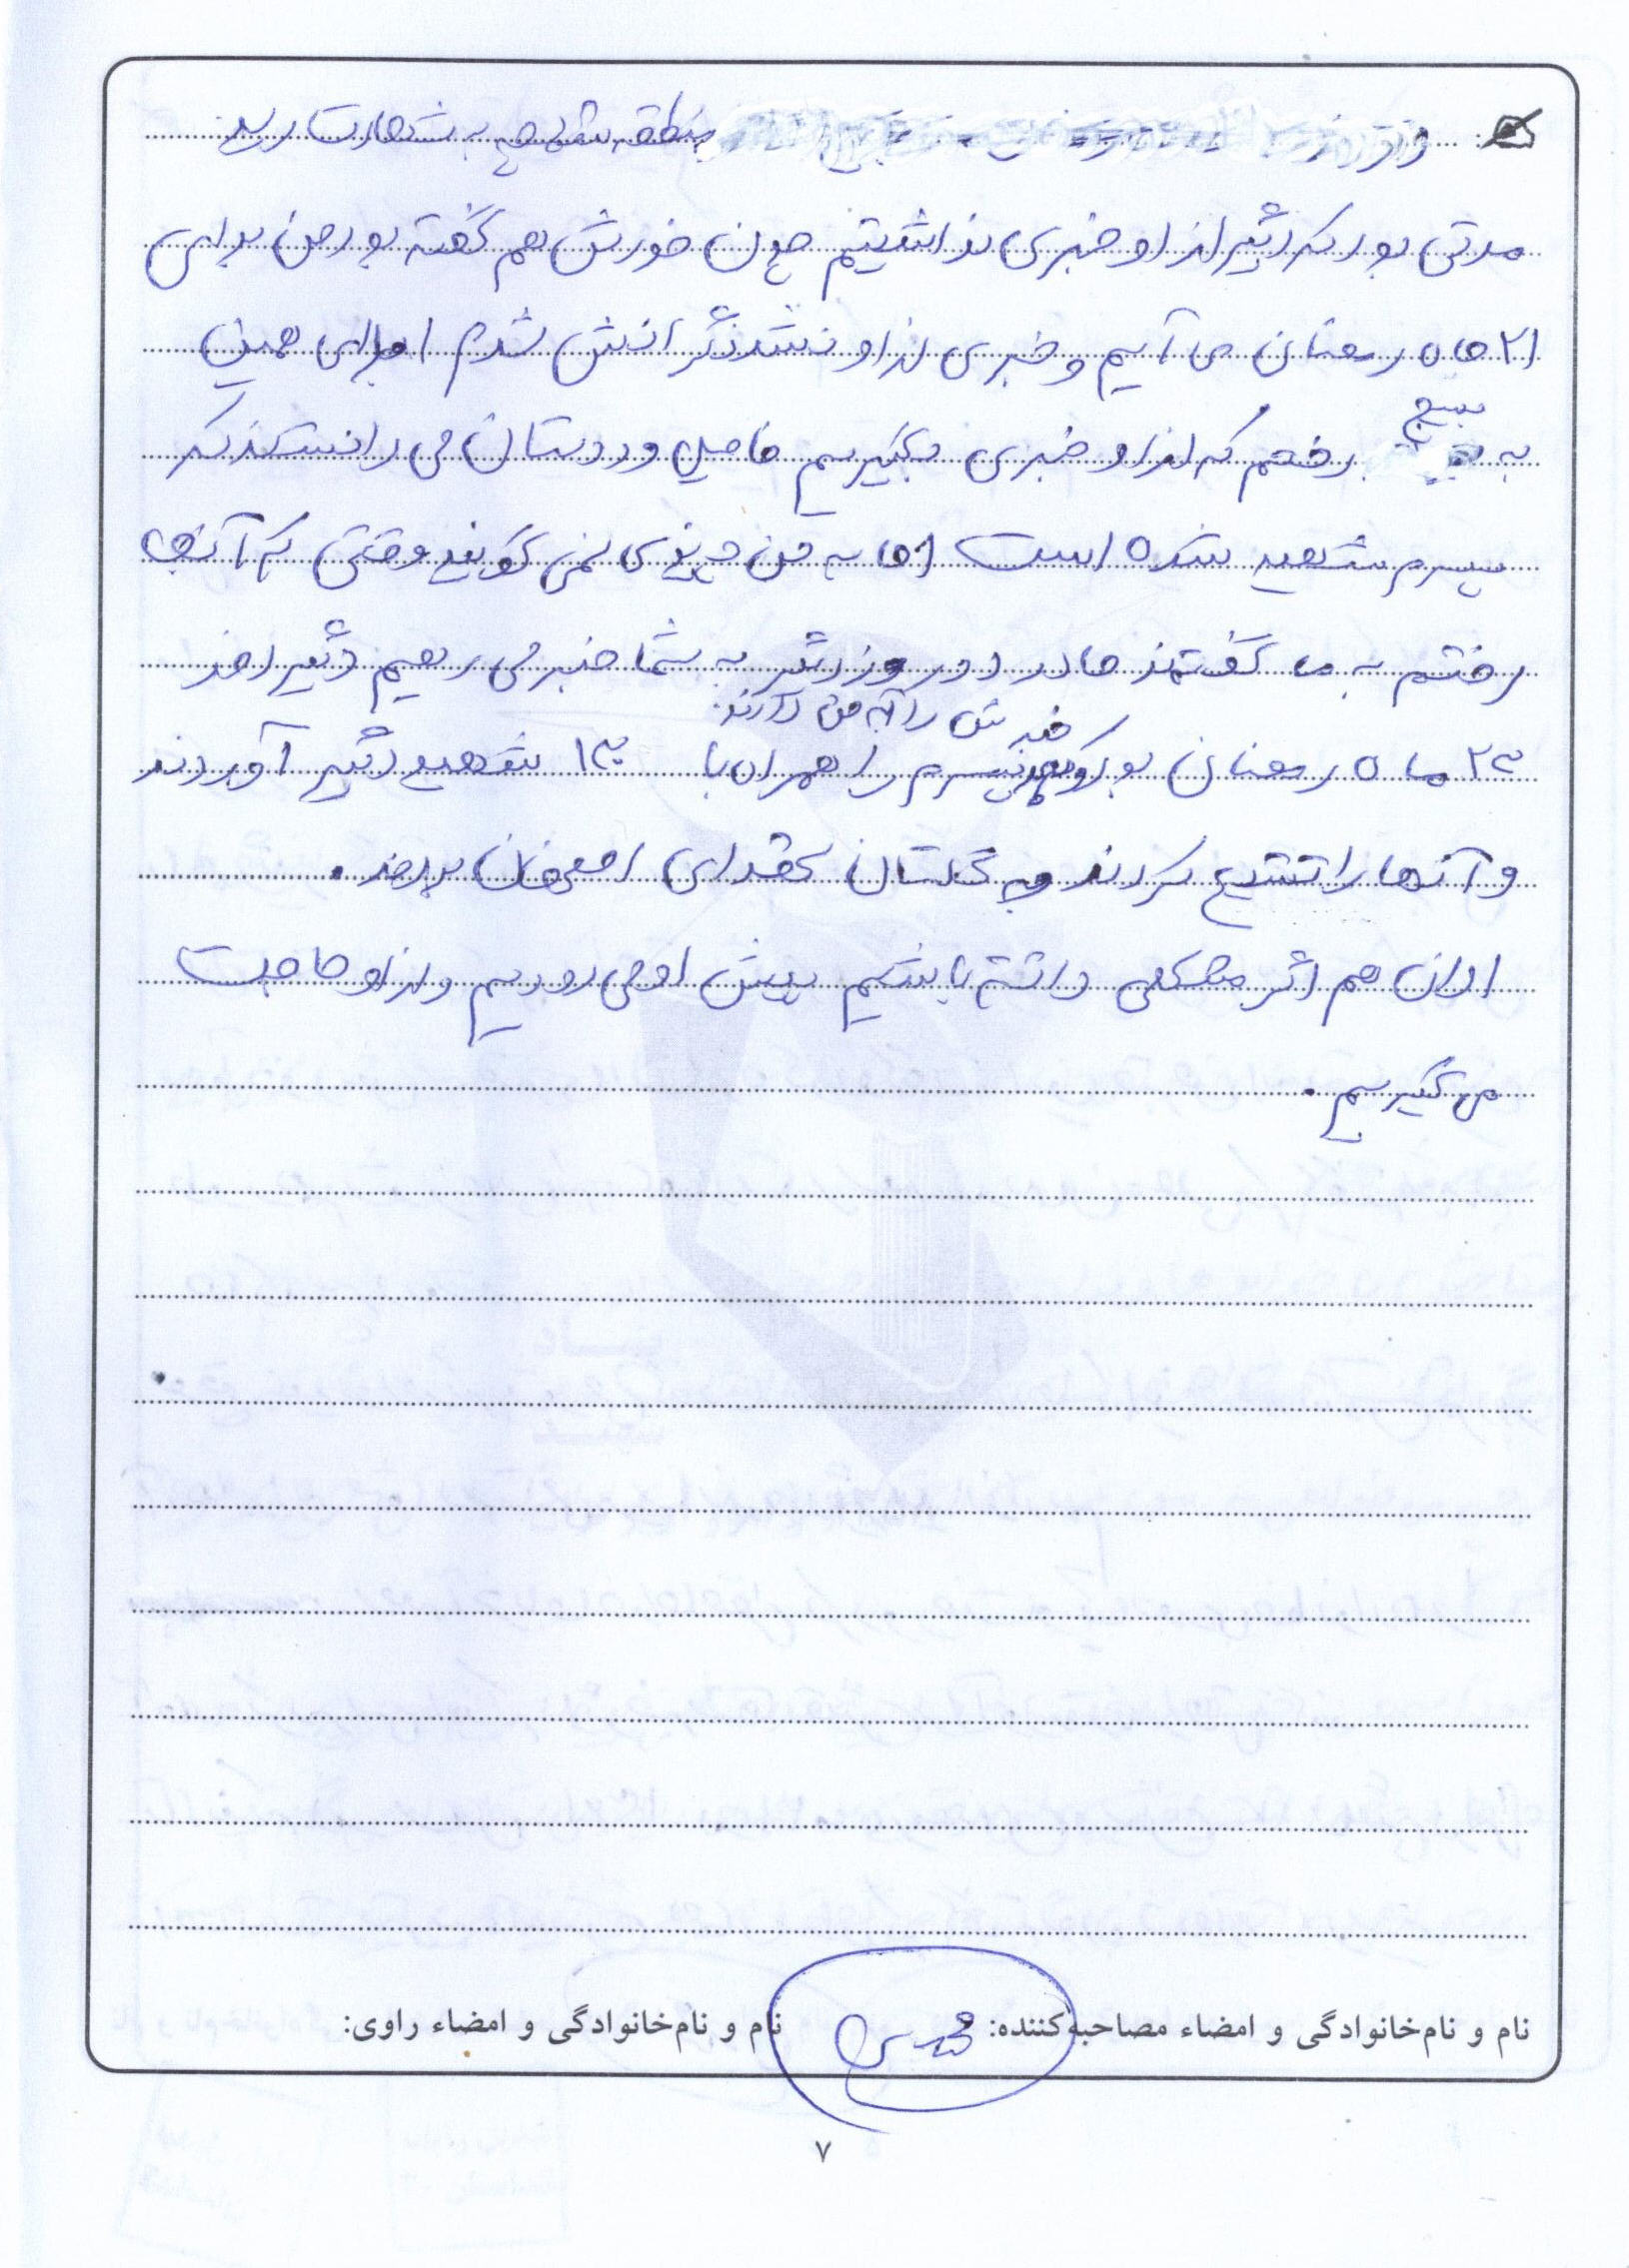 منطقه شلمچه به شهادت رسید
مدتی بود که دیگر از او خبری نداشتیم چون خودش هم گفته بود من برای
۲۱ ماه رمضان می آیم و خبری از او نشد نگرانش شدم برای همین
بسیج
به رفتم که از او خبری بگیریم فامیل و دوستان می دانستند که
پسرم شهید شده است اما به من چیزی نمی گویند وقتی که آنجا
رفتم به ما گفتند مادر دو روز دیگر به شما خبر می دهیم دیگر
خبرش را به من دادند.
۲۳ ماه رمضان بود که پسرم را همراه با ۱۳ شهید دیگر آوردند
و آنها را تشییع کردند و به گلستان شهدای اصفهان بردند.
الان هم اگر مشکلی داشته باشیم پیش او می رویم و از او حاجت
می گیریم.
نام و نام‌خانوادگی و امضاء مصاحبه‌کننده: نام و نام‌خانوادگی و امضاء راوی:
۷